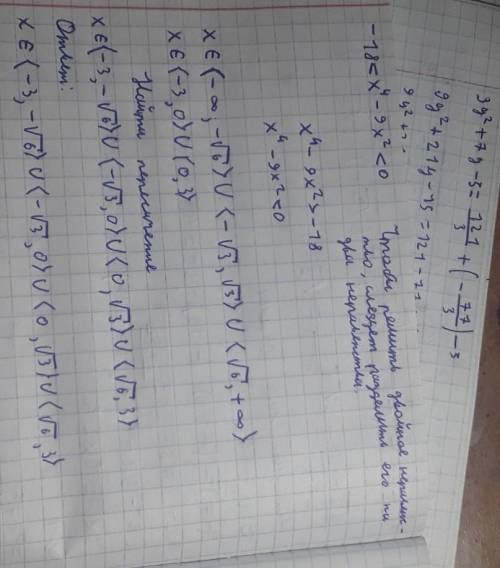 3y² + 7y - 5 = 121/3 + (-77/3) - 5
9y² + 21y - 15 = 121 - 77 ...
9y² + ...
-18 < x⁴ - 9x² < 0
Чтобы решить двойное неравенс-
тво, следует разделить его на
два неравенства.
x⁴ - 9x² > -18
x⁴ - 9x² < 0
x ∈ ⟨-∞, -√6⟩ ∪ ⟨-√3, √3⟩ ∪ ⟨√6, +∞⟩
x ∈ ⟨-3, 0⟩ ∪ ⟨0, 3⟩
Найти пересечение
x ∈ ⟨-3, -√6⟩ ∪ ⟨-√3, 0⟩ ∪ ⟨0, √3⟩ ∪ ⟨√6, 3⟩
Ответ:
x ∈ ⟨-3, -√6⟩ ∪ ⟨-√3, 0⟩ ∪ ⟨0, √3⟩ ∪ ⟨√6, 3⟩